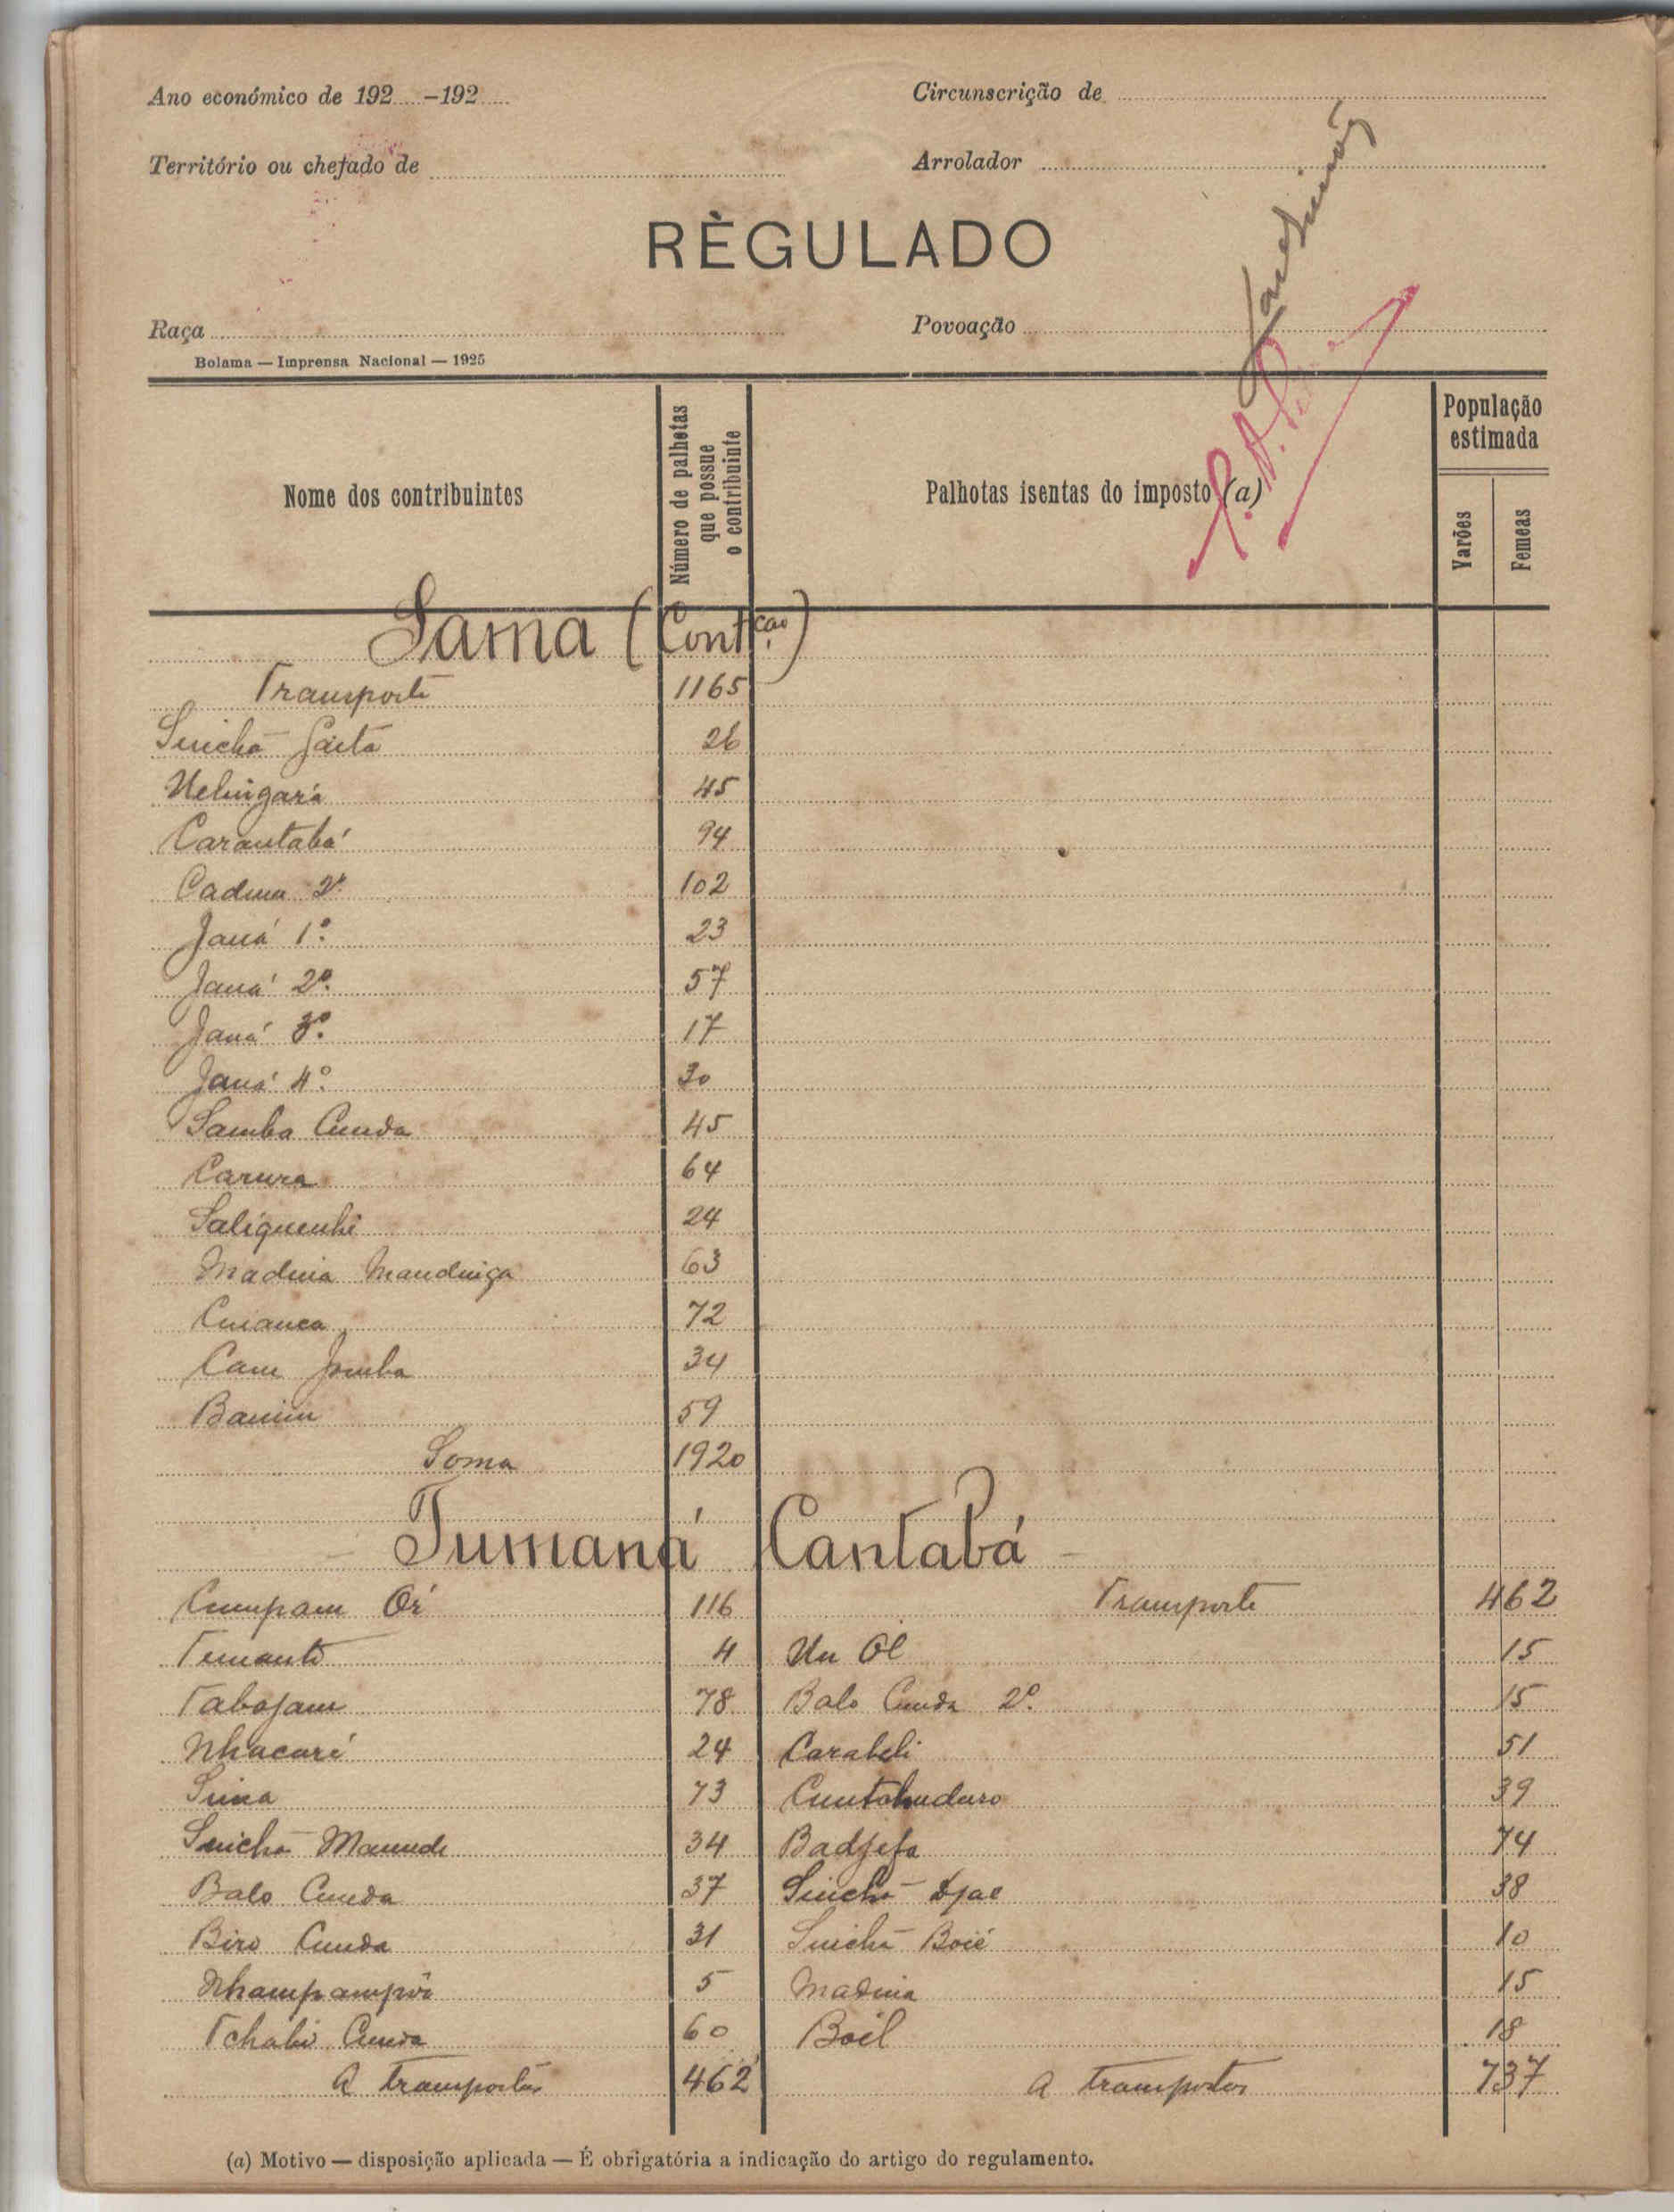 Ano económico de 192 -192
Circunscrição de
Território ou chefado de
Arrolador
RÈGULADO
Raça
Povoação
Bolama — Imprensa Nacional — 1925
Nome dos contribuintes
Número de palhotas que possue o contribuinte
Palhotas isentas do imposto (a)
População estimada
Varões
Femeas
Sama (Contçao)
Transporte 1165
Sinchã Gaitá 26
Uelingará 45
Carantabá 94
Cadina 2º 102
Janá 1º. 23
Janá 2º. 57
Janá 3º. 17
Janá 4º. 30
Samba Cunda 45
Carura 64
Saliquenhi 24
Madina Mandinga 63
72
Cam Jomba 34
59
Soma 1920
Tumaná Cantabá
Cumpam Or' 116 Transporte 462
4 15
Tabajam 78 Balo Cunda 2º. 15
Nhacaré 24 Carabeli 51
73 39
Sinchã 34 Badjefa 74
Balo Cunda 37 Sinchã Djae 38
Biro Cunda 31 Sinchã Boié 10
5 Madina 15
Tchabi Cunda 60 Boél 18
A transportar 462 A transportar 737
(a) Motivo — disposição aplicada — É obrigatória a indicação do artigo do regulamento.